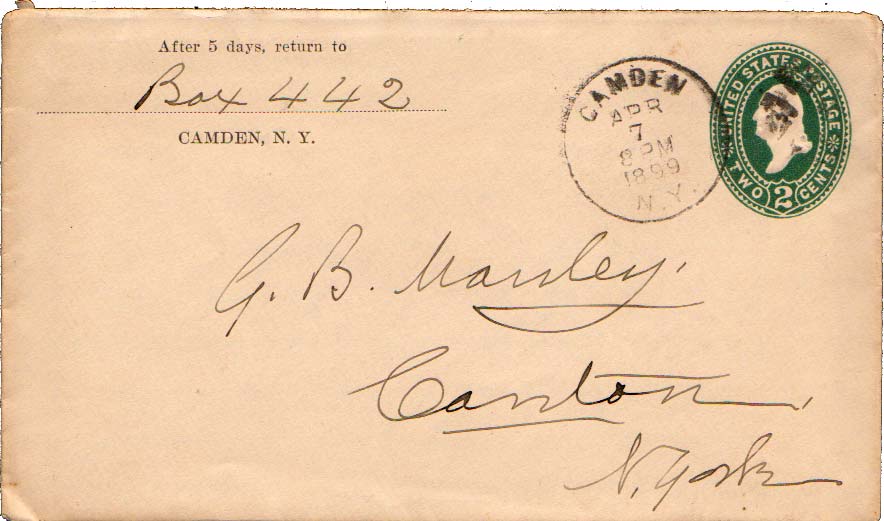 After 5 days, return to
Box 442
CAMDEN, N. Y.
CAMDEN
APR
7
8 PM
1899
N.Y.
UNITED STATES POSTAGE
TWO 2 CENTS
G. B. Manley,
Canton,
N. York